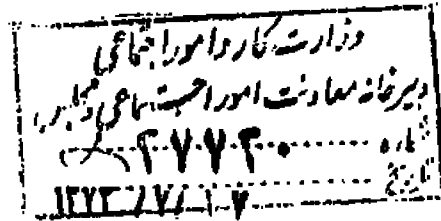 وزارت کار و امور اجتماعی
دبیرخانه معاونت امور اجتماعی و
شماره ۲۷۷۲۰
تاریخ ۱۳۷۳/۷/۱۷